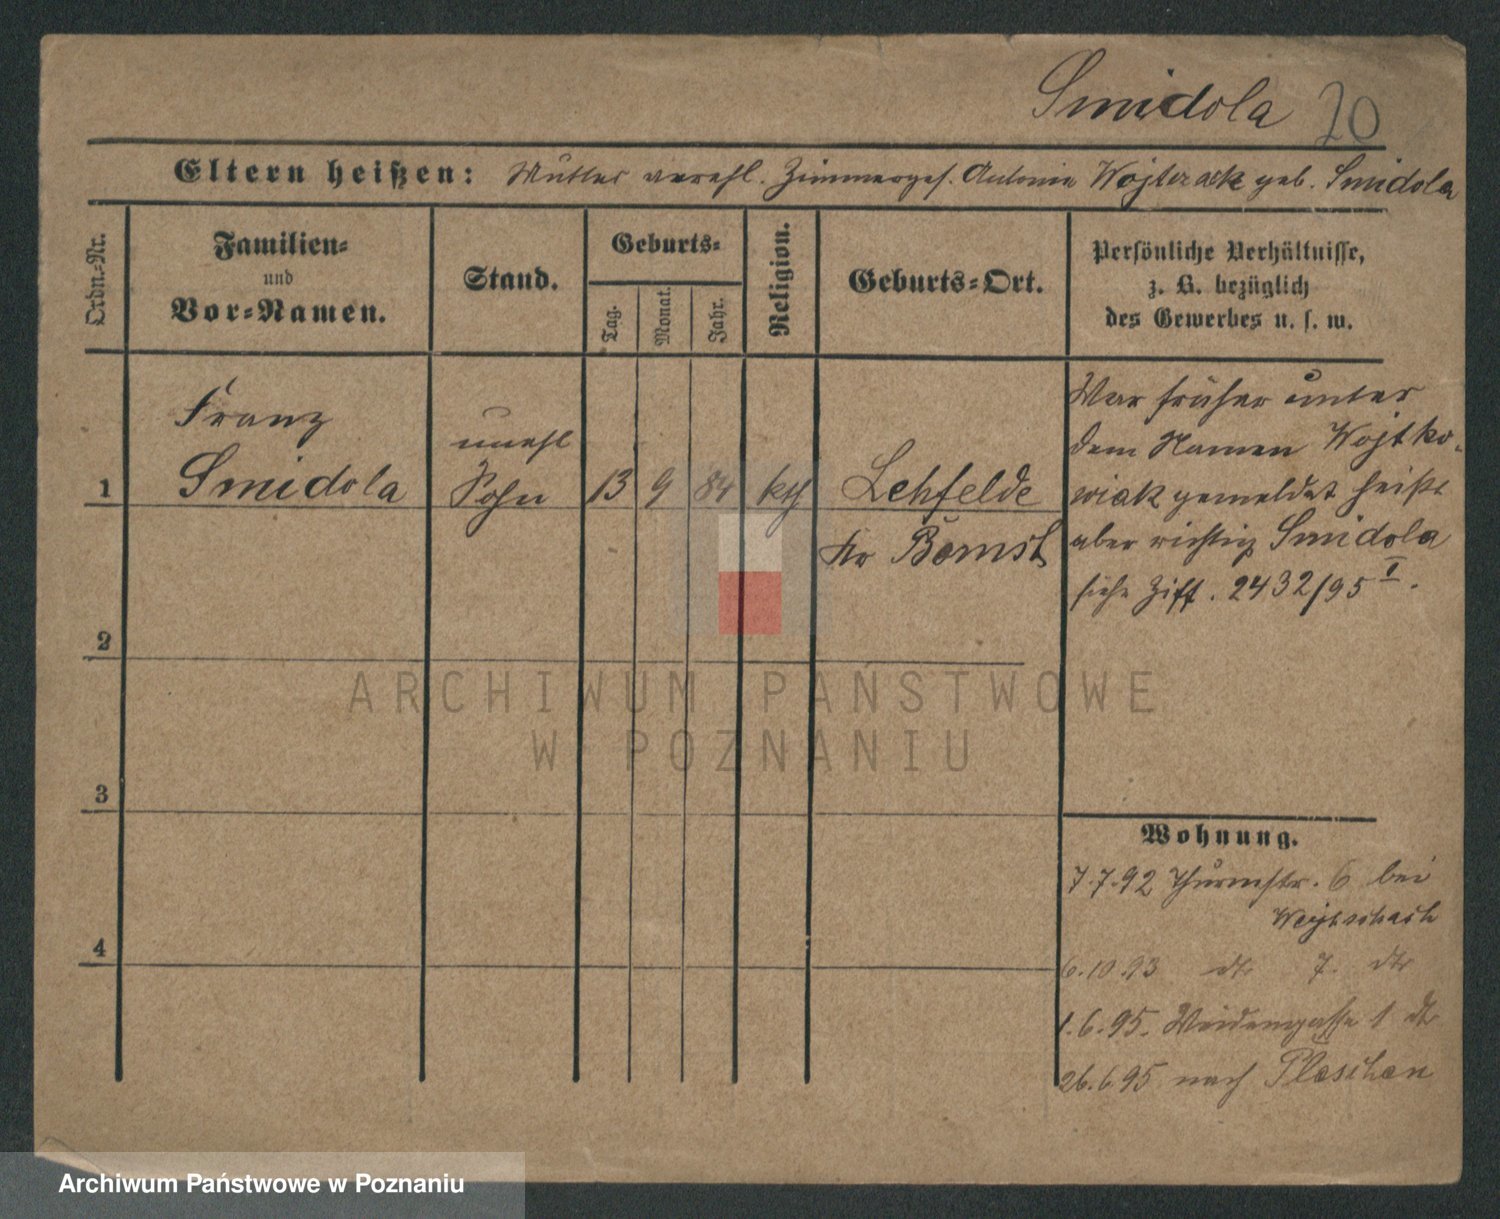 Smidola 20
Eltern heißen: Mutter verehl. Zimmerges. Antonie Wojtczack geb. Smidola
Ordn.-Nr.
Familien-
und
Vor-Namen.
Stand.
Geburts-
Tag.
Monat.
Jahr.
Religion.
Geburts-Ort.
Persönliche Verhältnisse,
z. B. bezüglich
des Gewerbes u. s. w.
1
Franz
Smidola
unehl
Sohn
13
9
84
kth
Lehfelde
Kr Bomst
War früher unter
dem Namen Wojtko-
wiak gemeldet heißt
aber richtig Smidola
siehe Ziff. 2432/95 I.
2
3
4
Wohnung.
7.7.92 Thurmstr. 6 bei
6.10.93 dto 7. dto
1.6.95. Weidengasse 1 dto
26.6.95 nach Pleschen
ARCHIWUM PAŃSTWOWE
W POZNANIU
Archiwum Państwowe w Poznaniu